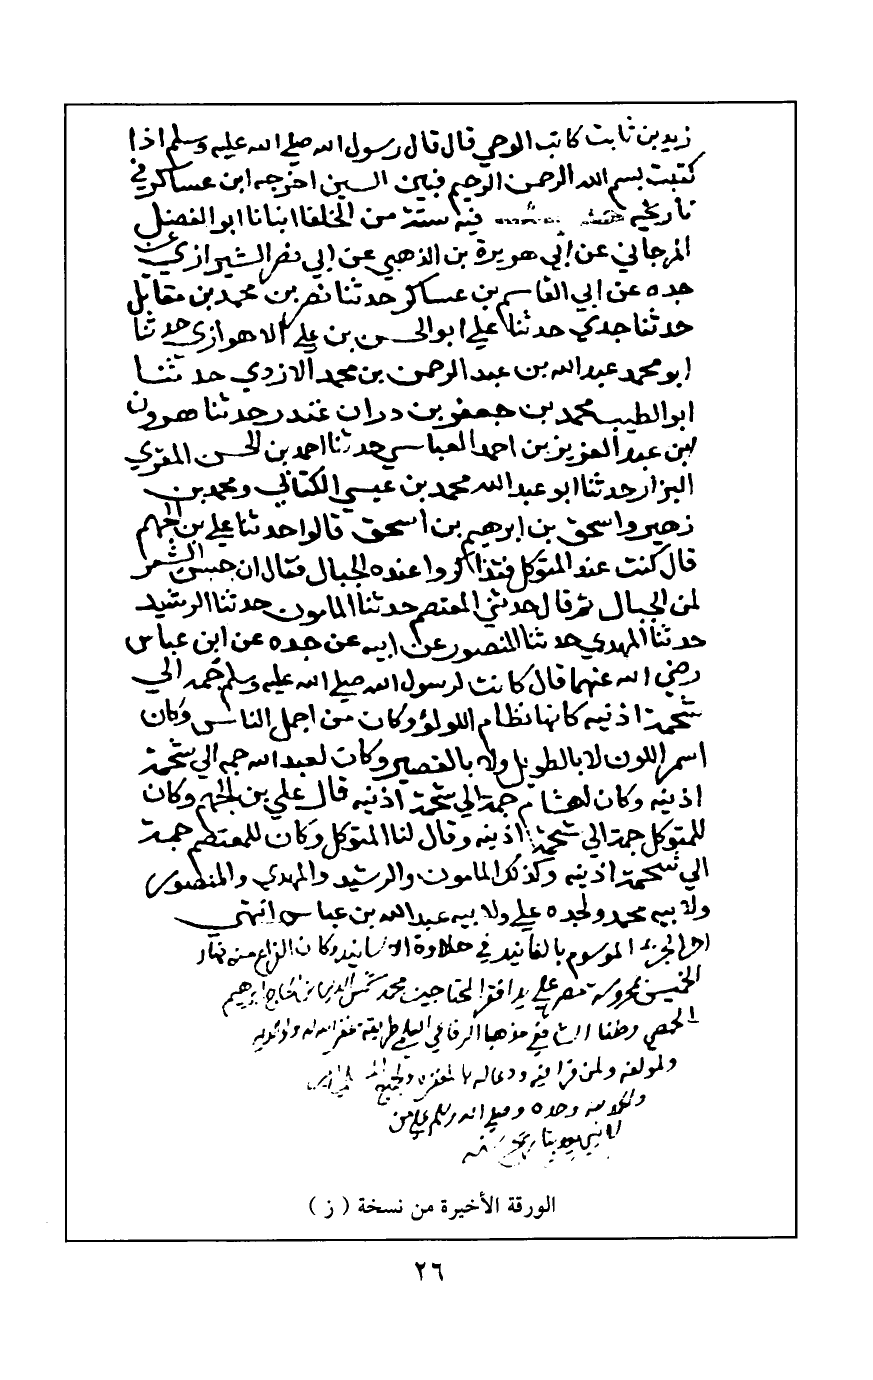 زيد بن ثابت كاتب الوحي قال قال رسول الله صلى الله عليه وسلم اذا
كتبت بسم الله الرحمن الرحيم فبين السين اخرجه ابن عساكر في
تاريخه فيه ستة من الخلفا انبانا ابو الفضل
المرجاني عن ابي هريرة بن الذهبي عن ابي نصر الشيرازي عن
جده عن ابي القاسم بن عساكر حدثنا نصر بن محمد بن مقاتل
حدثنا جدي حدثنا علي ابو الحسن بن علي الاهوازي حدثنا
ابو محمد عبد الله بن عبد الرحمن بن محمد الازدي حدثنا
ابو الطيب محمد بن جعفر بن دران غندر حدثنا هرون
ابن عبد العزيز بن احمد العباسي حدثنا احمد بن الحسن المقري
البزار حدثنا ابو عبد الله محمد بن عيسي الكتاني ومحمد بن
زهير واسحق بن ابرهيم بن اسحق قالوا حدثنا علي بن الجهم
قال كنت عند المتوكل فتذاكروا عنده الجمال فقال ان حسن الشعر
لمن الجمال ثم قال حدثني المعتصم حدثنا المامون حدثنا الرشيد
حدثنا المهدي حدثنا المنصور عن ابيه عن جده عن ابن عباس
رضي الله عنهما قال كانت لرسول الله صلى الله عليه وسلم جمة الي
شحمة اذنيه كانها نظام اللولو وكان من اجمل الناس وكان
اسمر اللون لا بالطويل ولا بالقصير وكان لعبد الله جمة الي شحمة
اذنيه وكان لهشام جمة الي شحمة اذنيه قال علي بن الجهم وكان
للمتوكل جمة الي شحمة اذنيه وقال لنا المتوكل وكان للمعتصم جمة
الي شحمة اذنيه وكذلك المامون والرشيد والمهدي والمنصور
ولابيه محمد ولجده علي ولابيه عبد الله بن عباس انتهي
اخر الجزء الموسوم بالفانيد في حلاوة الاسانيد وكان الفراغ من نهار
الخميس بمحروسة مصر علي يد افقر المحتاجين محمد شمس الدين بن الحاج ابرهيم
الحمصي وطنا الشافعي مذهبا الرفاعي طريقة غفر الله له ولوالديه
ولمولفه ولمن قرا فيه ودعا له بالمغفرة ولجميع
والحمد لله وحده وصلى الله وسلم علي من
لا نبي بعده
الورقة الأخيرة من نسخة ( ز )
٢٦